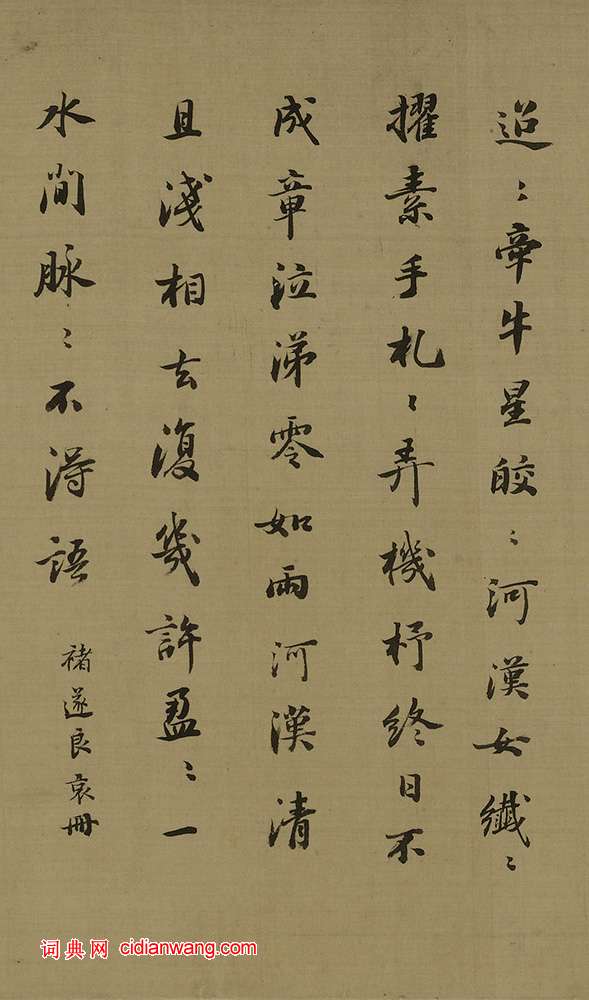 迢〻牽牛星皎〻河漢女纖〻
擢素手札〻弄機杼終日不
成章泣涕零如雨河漢清
且淺相去復幾許盈〻一
水間脉〻不得語 褚遂良哀冊
词典网 cidianwang.com